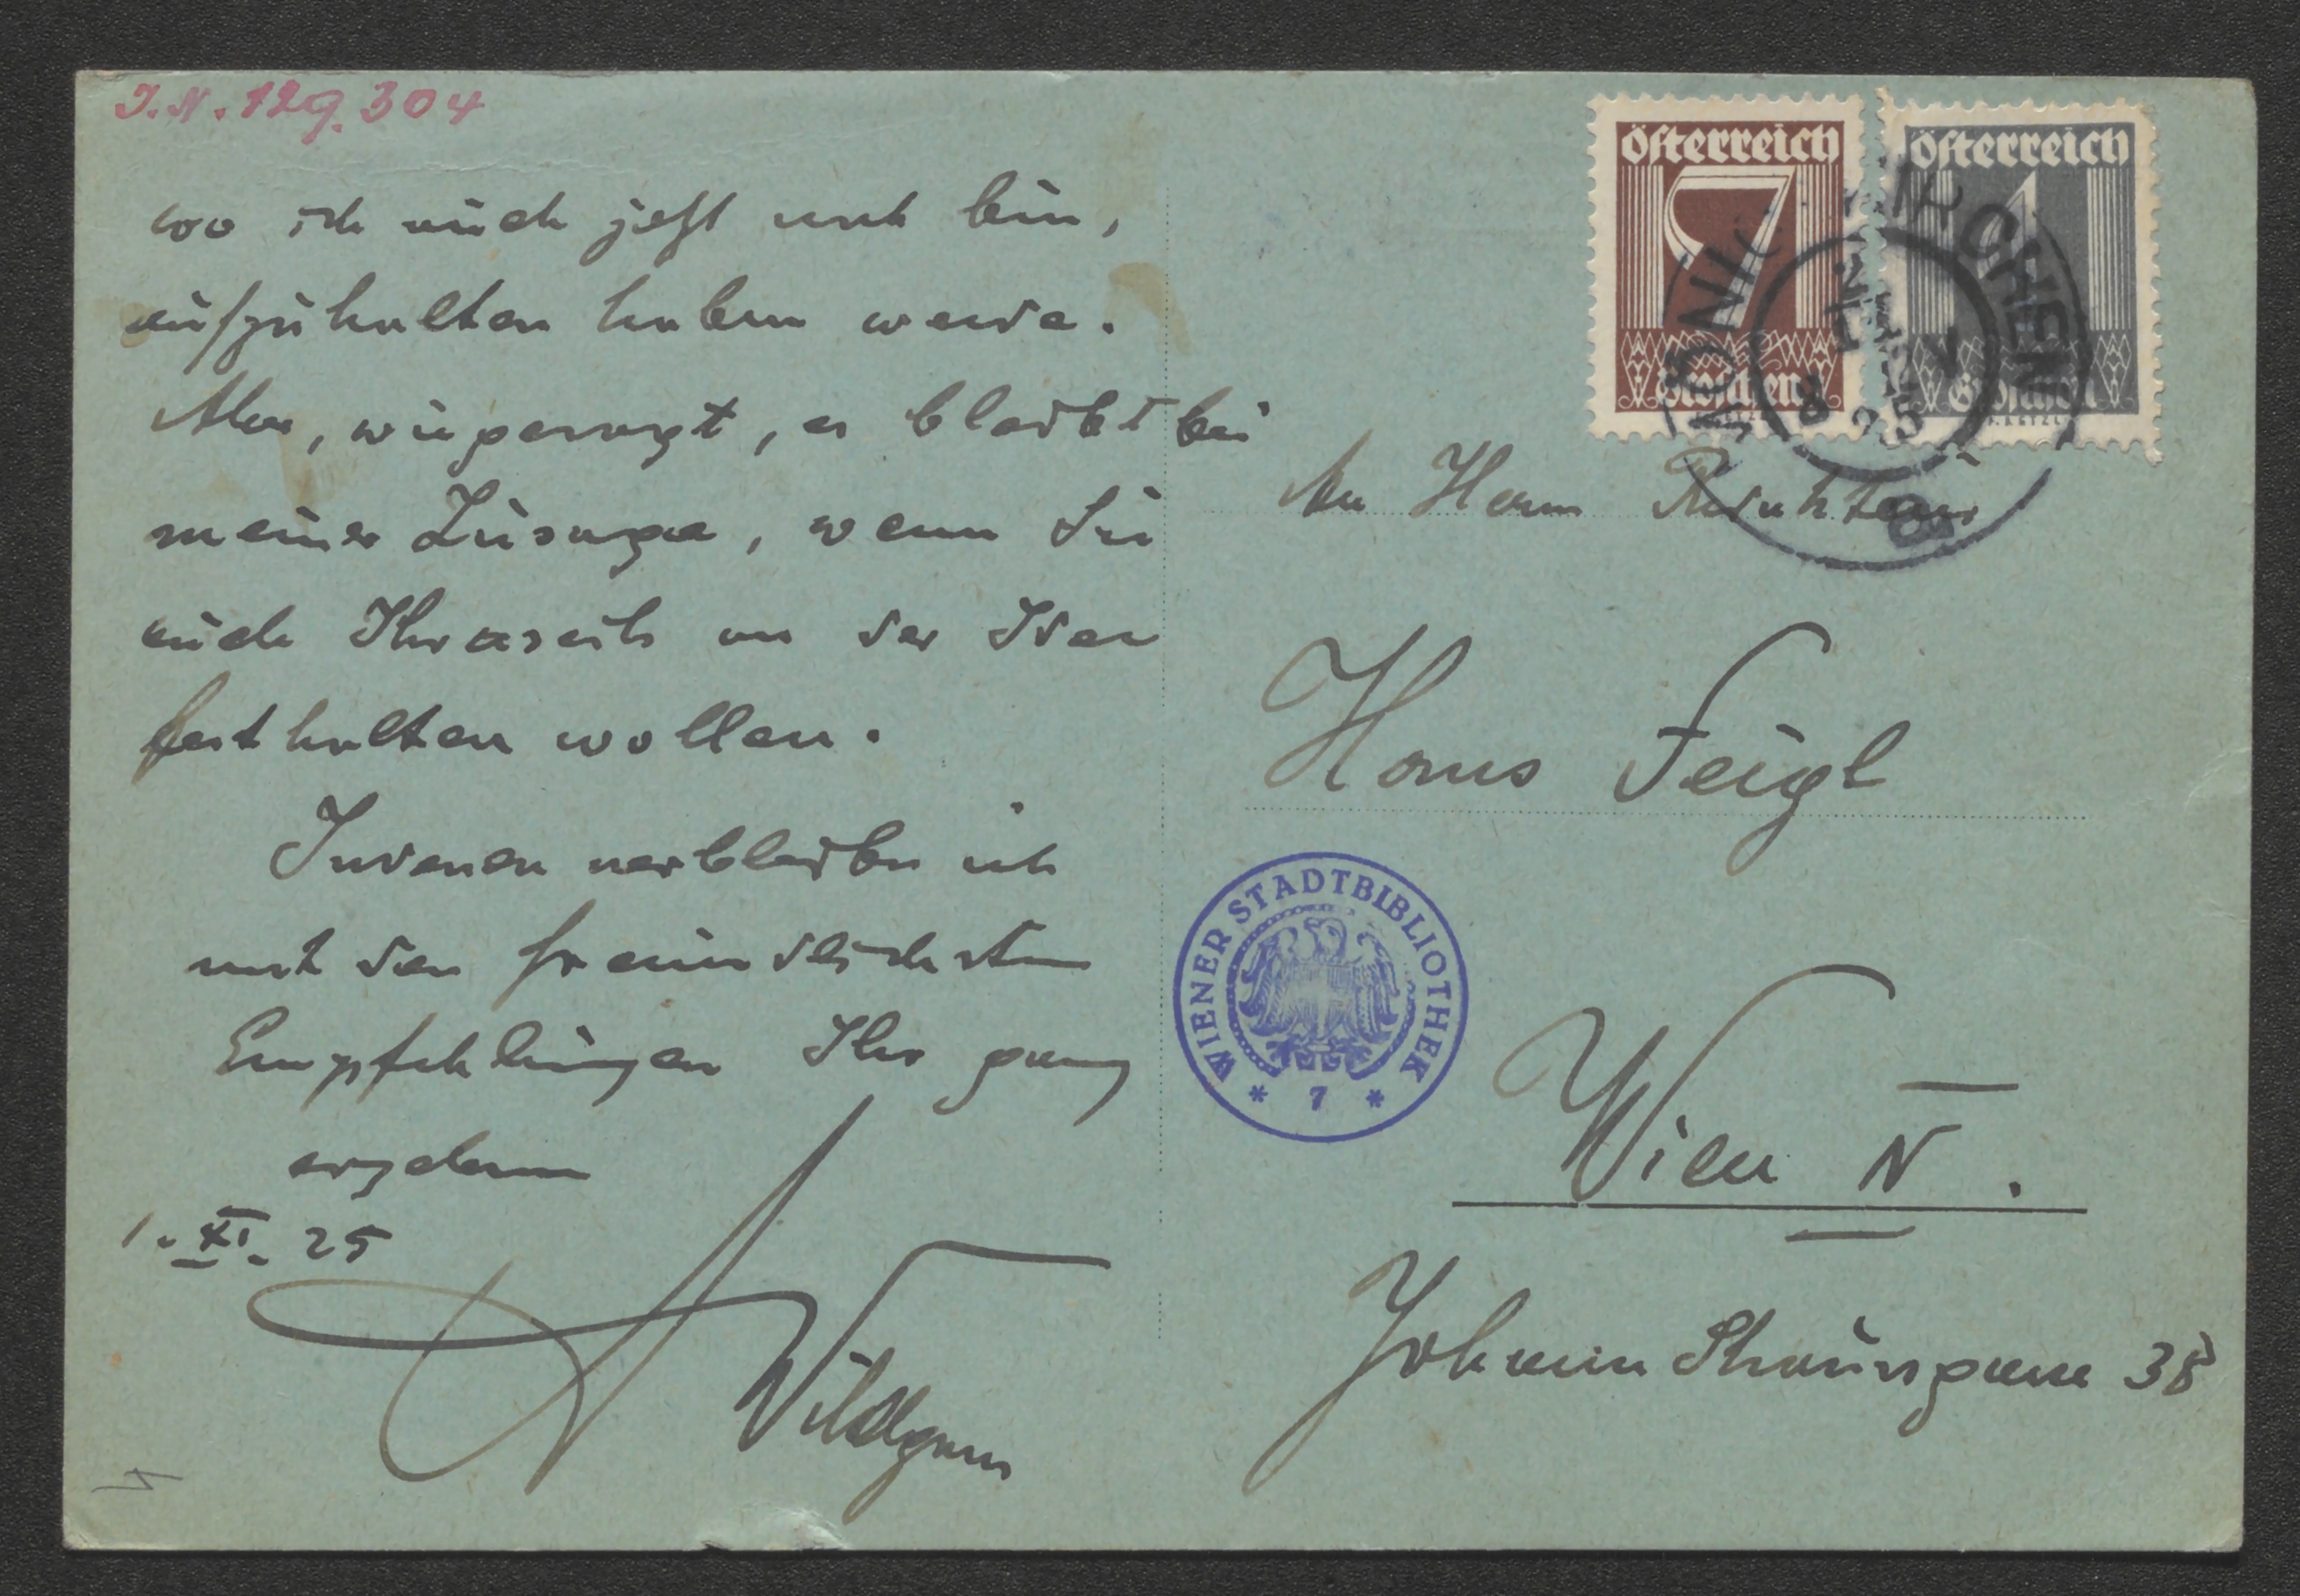 I.N. 129.304
wo ich auch jetzt noch bin,
aufzuhalten haben werde.
Aber, wie gesagt, es bleibt bei
meiner Zusage, wenn Sie
auch Ihrerseits an der Idee
festhalten wollen.
Indessen verbleibe ich
mit den freundlichsten
Empfehlungen Ihr ganz
ergebener
1. XI. 25
A Wildgans
Österreich
7
Groschen
Österreich
1
Groschen
MÖNICHKIRCHEN
An Herrn Redakteur
Hans Feigl
WIENER STADTBIBLIOTHEK
* 7 *
Wien IV.
Johann Straussgasse 38